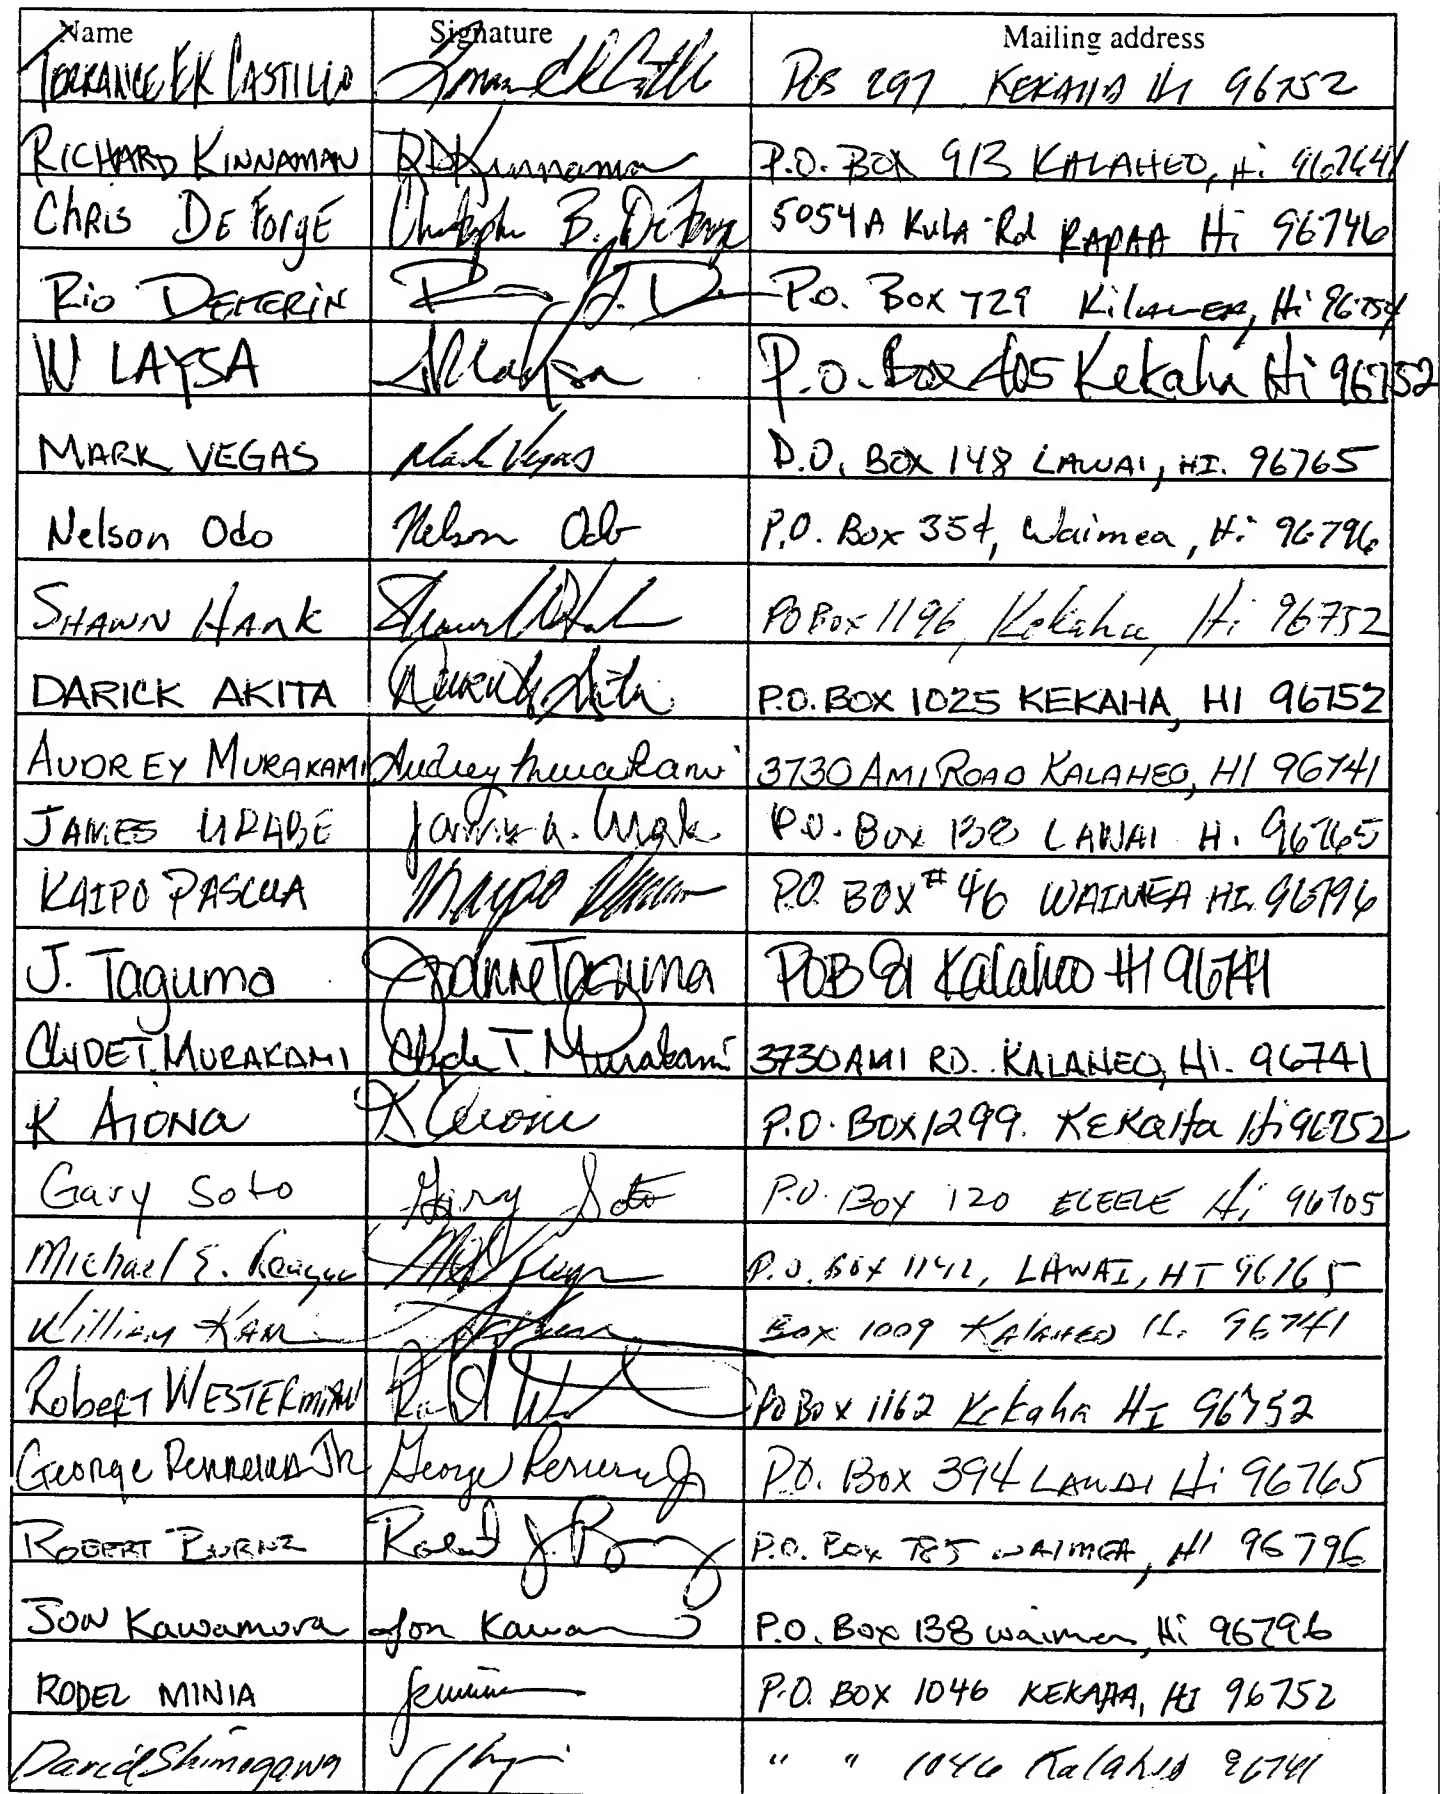 Name Signature Mailing address
TERRANCE EK CASTILLO POB 297 KEKAHA HI 96752
RICHARD KINNAMAN RDKinnaman P.O. BOX 913 KALAHEO, Hi 96741
CHRIS DE Forge Christopher B. DeForge 5054A KULA Rd KAPAA Hi 96746
Rio DEMERIN P.O. Box 729 KiLAUEA, Hi 96754
W LAYSA WLaysa P.O. Box 405 Kekaha Hi 96752
MARK VEGAS Mark Vegas P.O. BOX 148 LAWAI, HI. 96765
Nelson Odo Nelson Odo P.O. Box 354, Waimea, Hi 96796
SHAWN HANK PO Box 1196, Kekaha, Hi 96752
DARICK AKITA Darick Akita P.O. BOX 1025 KEKAHA, HI 96752
AUDREY MURAKAMI Audrey Murakami 3730 AMI ROAD KALAHEO, HI 96741
JAMES URABE James A. Urabe P.O. BOX 138 LAWAI Hi 96765
KAIPO PASCUA Kaipo Pascua P.O. BOX # 46 WAIMEA HI. 96796
J. Taguma Joanne Taguma POB 81 Kalaheo HI 96741
CLYDE T. MURAKAMI Clyde T. Murakami 3730 AMI RD. KALAHEO, HI. 96741
K AIONA K Aiona P.O. BOX 1299. KEKAHA Hi 96752
Gary Soto Gary Soto P.O. Box 120 ELEELE Hi 96705
Michael E. P.O. Box 1142, LAWAI, HI 96765
William KAM Box 1009 KALAHEO Hi 96741
Robert WESTERMAN PO Box 1162 Kekaha HI 96752
George Perreira Jr George Perreira Jr P.O. Box 394 LAWAI Hi 96765
ROBERT BURNZ Robert J. P.O. Box 785 WAIMEA, HI 96796
JON Kawamura Jon Kawam P.O. Box 138 Waimea, Hi 96796
RODEL MINIA P.O. BOX 1046 KEKAHA, HI 96752
David Shimogawa " " 1046 Kalaheo 96741